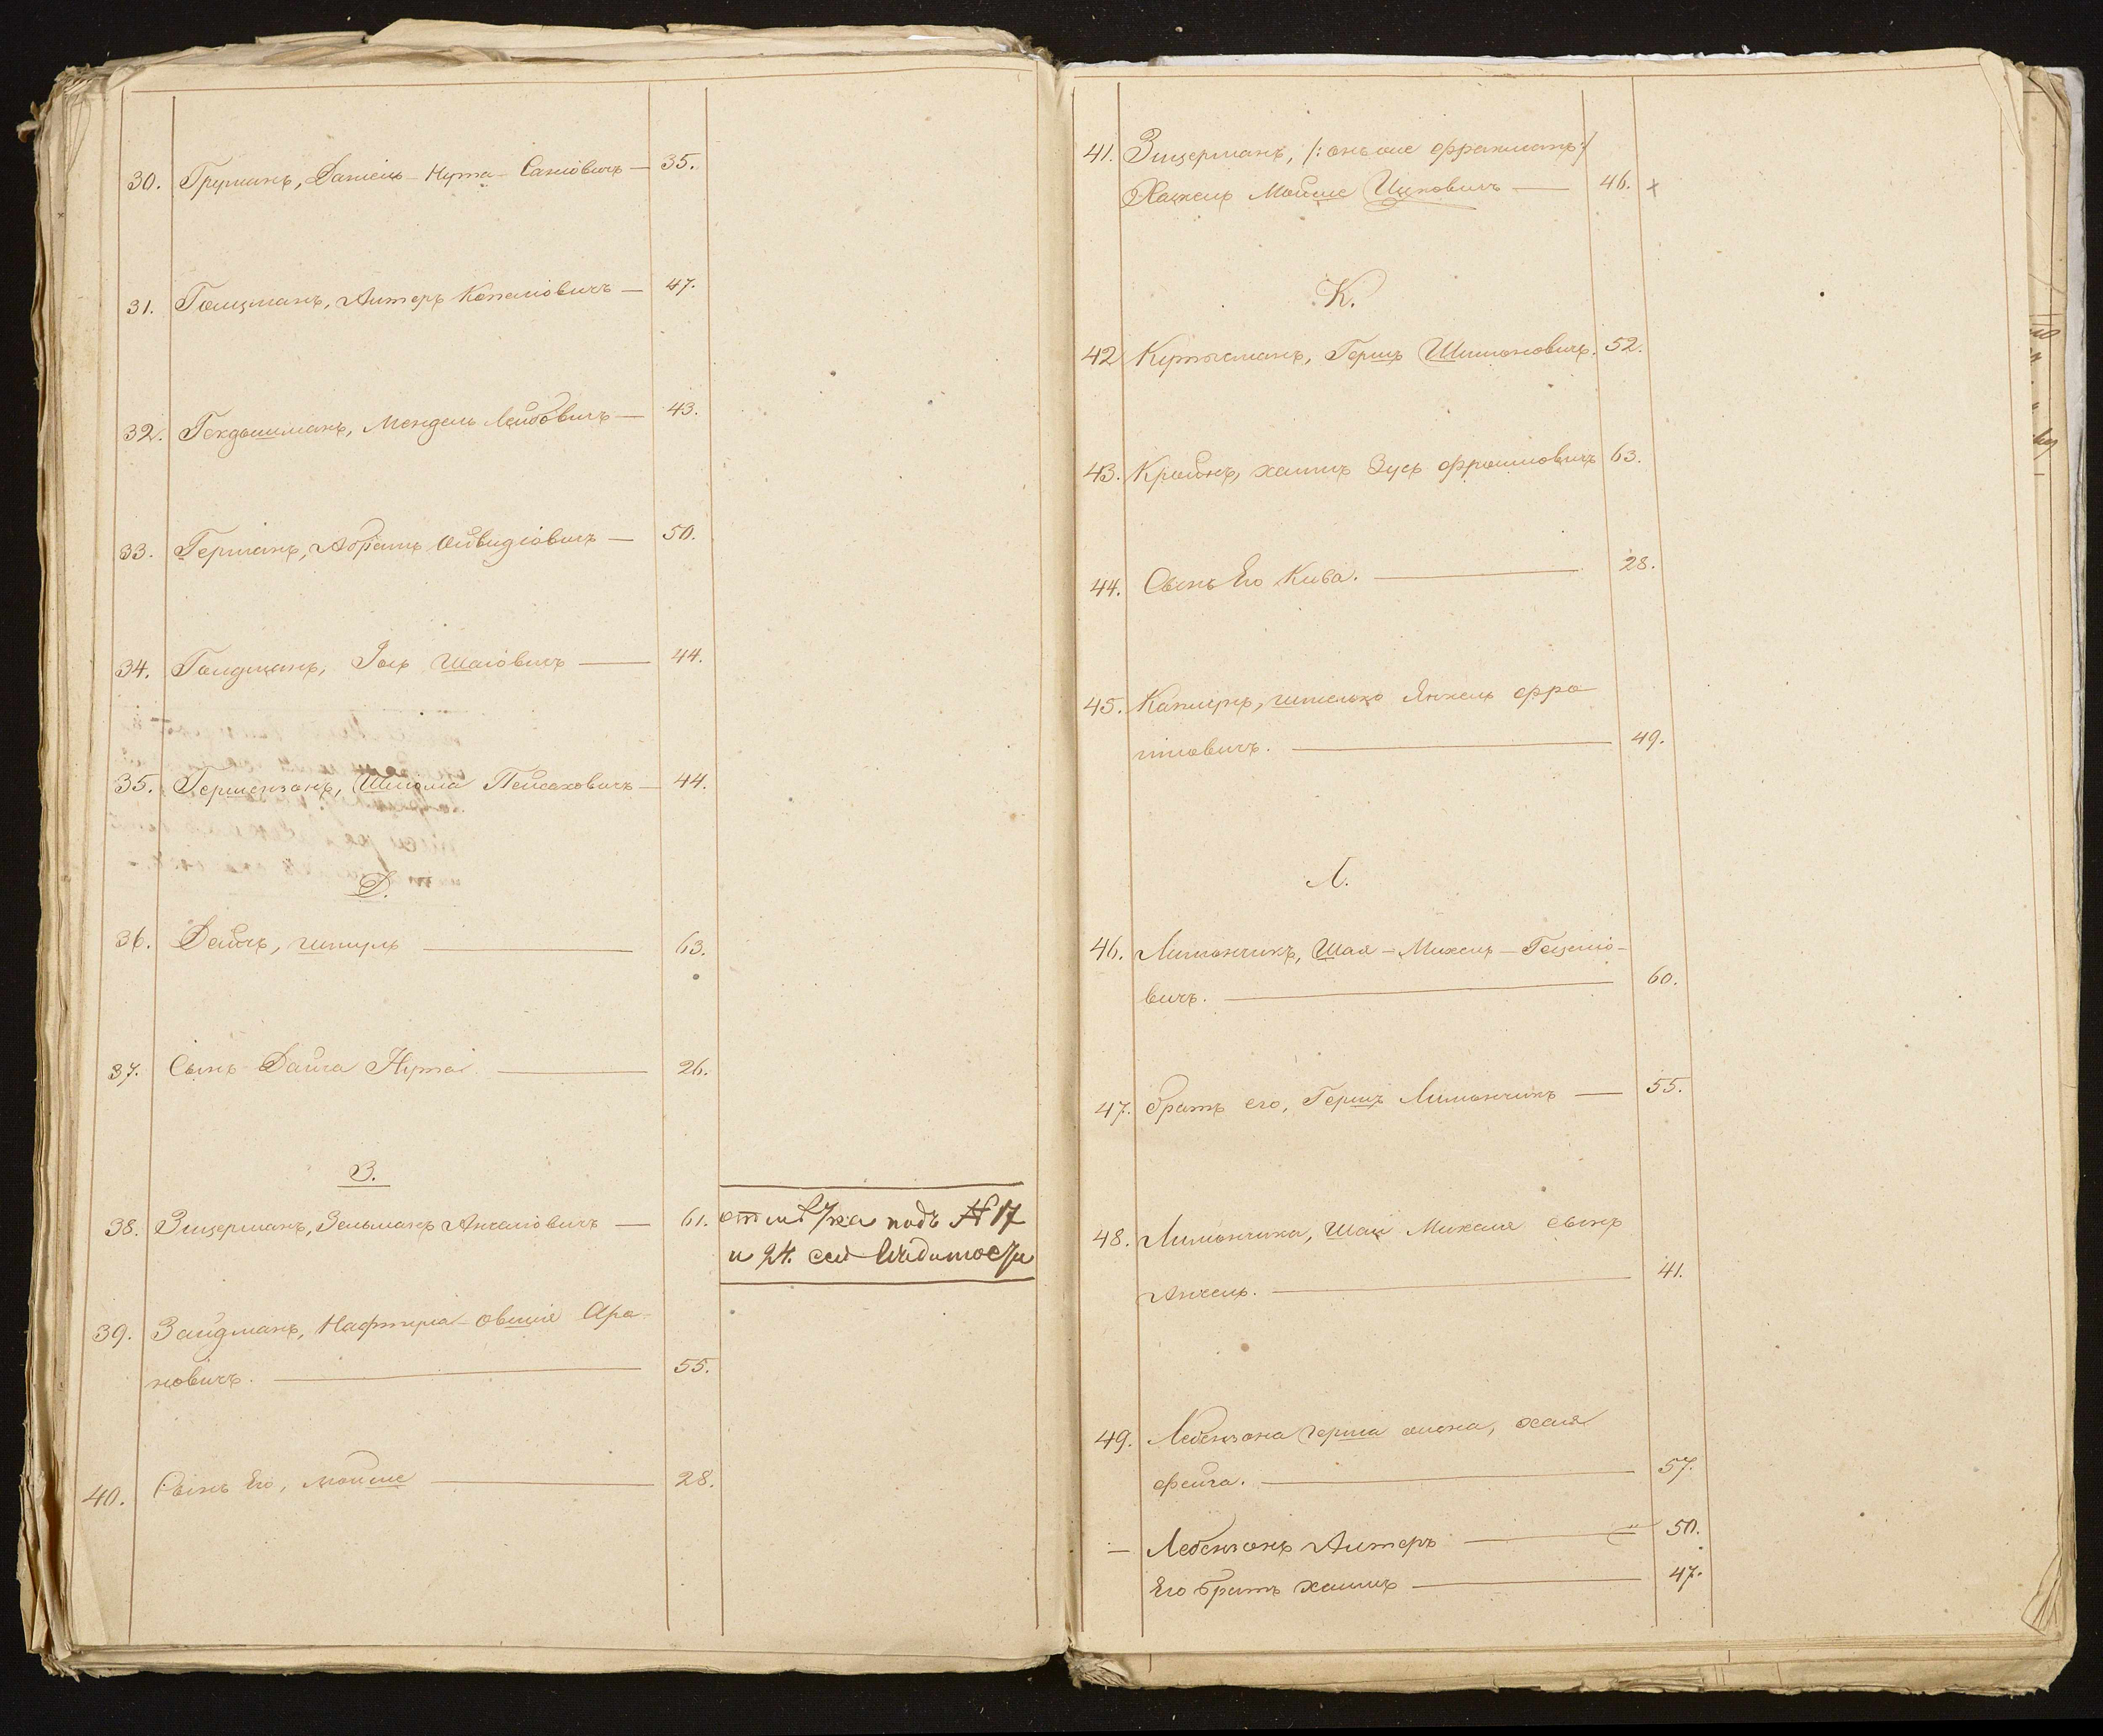 30. Груманъ, Даніель-Нута Саніовичъ — 35.
31. Голцманъ, Алтеръ Копеліовичъ — 47.
32. Гехдышманъ, Мендель Лейбовичъ — 43.
33. Германъ, Абрамъ Айвидіовичъ — 50.
34. Голдманъ, Іось Шаіовичъ — 44.
35. Гершензонъ, Шліома Пейсаховичъ — 44.
Д.
36. Дайчъ, шмуль — 63.
37. Сынъ Дайча Нута — 26.
З.
38. Зицерманъ, Зельманъ Анчаліовичъ — 61.
подъ № 17
и 24. сей Ведомости
39. Зайдманъ, Нафтула-овшіе Аро-
новичъ. — 55.
40. Сынъ Его, мойше — 28.
41. Зицерманъ, /: онъ же Фрахманъ :/
Хацкель Мойше Ицковичъ — 46. x
К.
42 Кутысманъ, Гершъ Шимоновичъ. 52.
43. Крайнъ, хаимъ Зусь Фроимовичъ 63.
44. Сынъ Его Кива. — 28.
45. Каплунъ, шмелько Янкель Фро-
имовичъ. — 49.
Л.
46. Лимончикъ, Шая-Михель-Гецеліо-
вичъ. — 60.
47. братъ его, Гершъ Лимончикъ — 55.
48. Лимончика, Шаи Михеля сынъ
Анчель. — 41.
49. Лебензона герша жена, хая
фейга. — 57.
— Лебензонъ Алтеръ — " 50.
Его братъ хаимъ — 47.